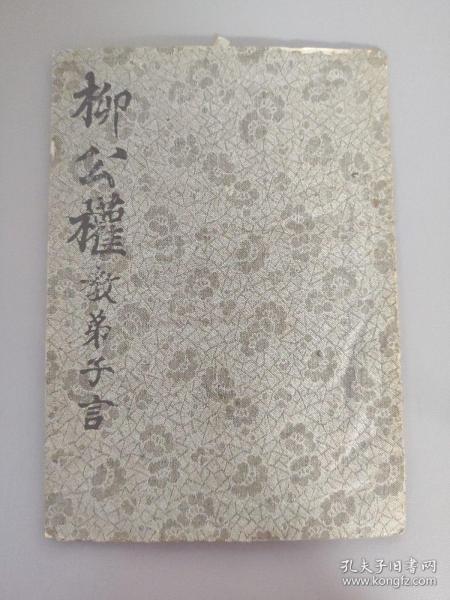 柳公權教弟子言
孔夫子旧书网
www.kongfz.com